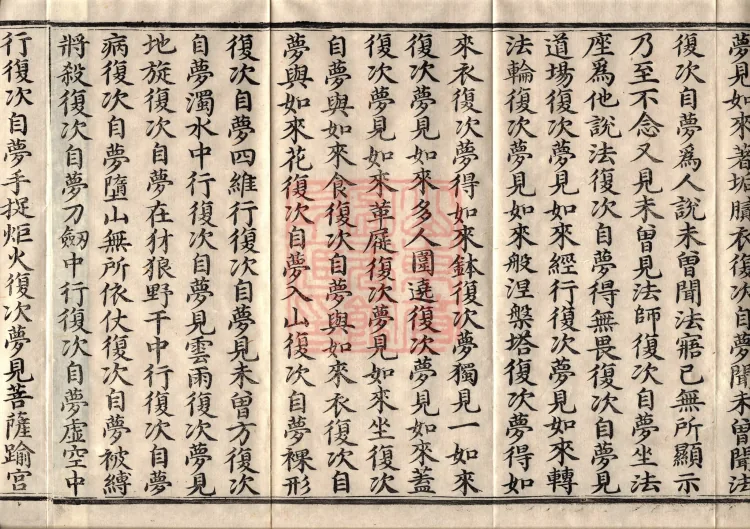 夢見如來著垢膩衣復次自夢聞未曾聞法
復次自夢為人說未曾聞法寤已無所顯示
乃至不念又見未曾見法師復次自夢坐法
座為他說法復次自夢得無畏復次自夢見
道場復次夢見如來經行復次夢見如來轉
法輪復次夢見如來般涅槃塔復次夢得如
來衣復次夢得如來鉢復次夢獨見一如來
復次夢見如來多人圍遶復次夢見如來蓋
復次夢見如來革屣復次夢見如來坐復次
自夢與如來食復次自夢與如來衣復次自
夢與如來花復次自夢入山復次自夢裸形
復次自夢四維行復次自夢見未曾方復次
自夢濁水中行復次自夢見雲雨復次夢見
地旋復次自夢在犲狼野干中行復次自夢
病復次自夢墮山無所依仗復次自夢被縛
將殺復次自夢刀劒中行復次自夢虛空中
行復次自夢手捉炬火復次夢見菩薩踰宮